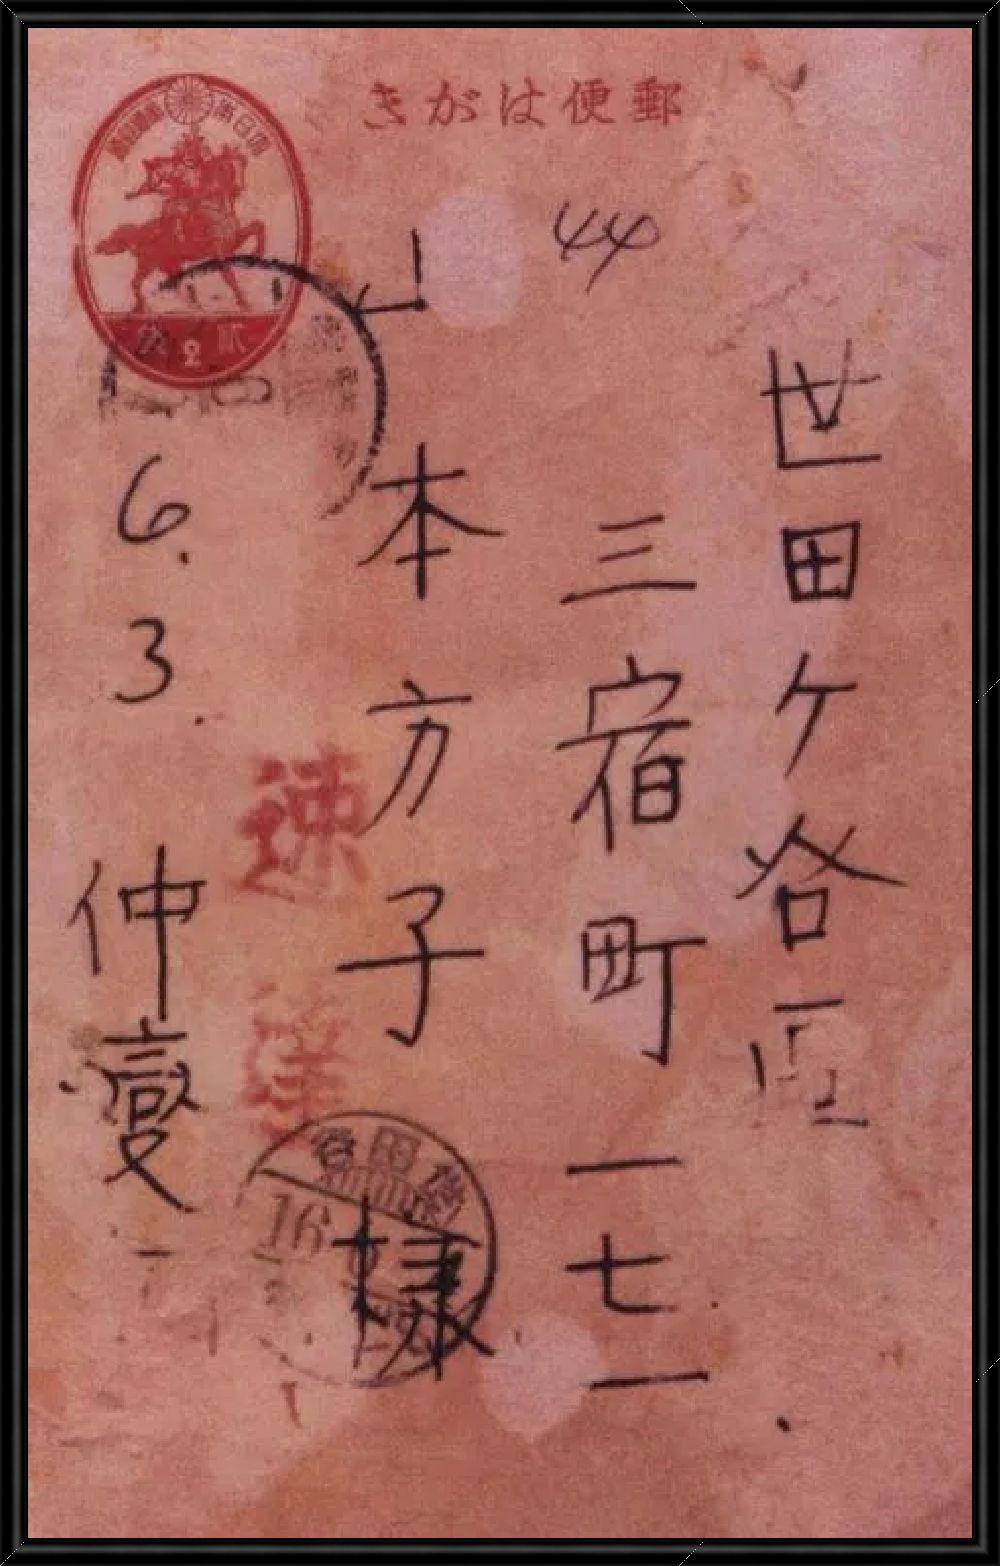 郵便はがき
大日本帝國郵便
貳 2
44
世田ケ谷區
三宿町一七一
山本方子様
速達
世田谷
16
6.3.
仲